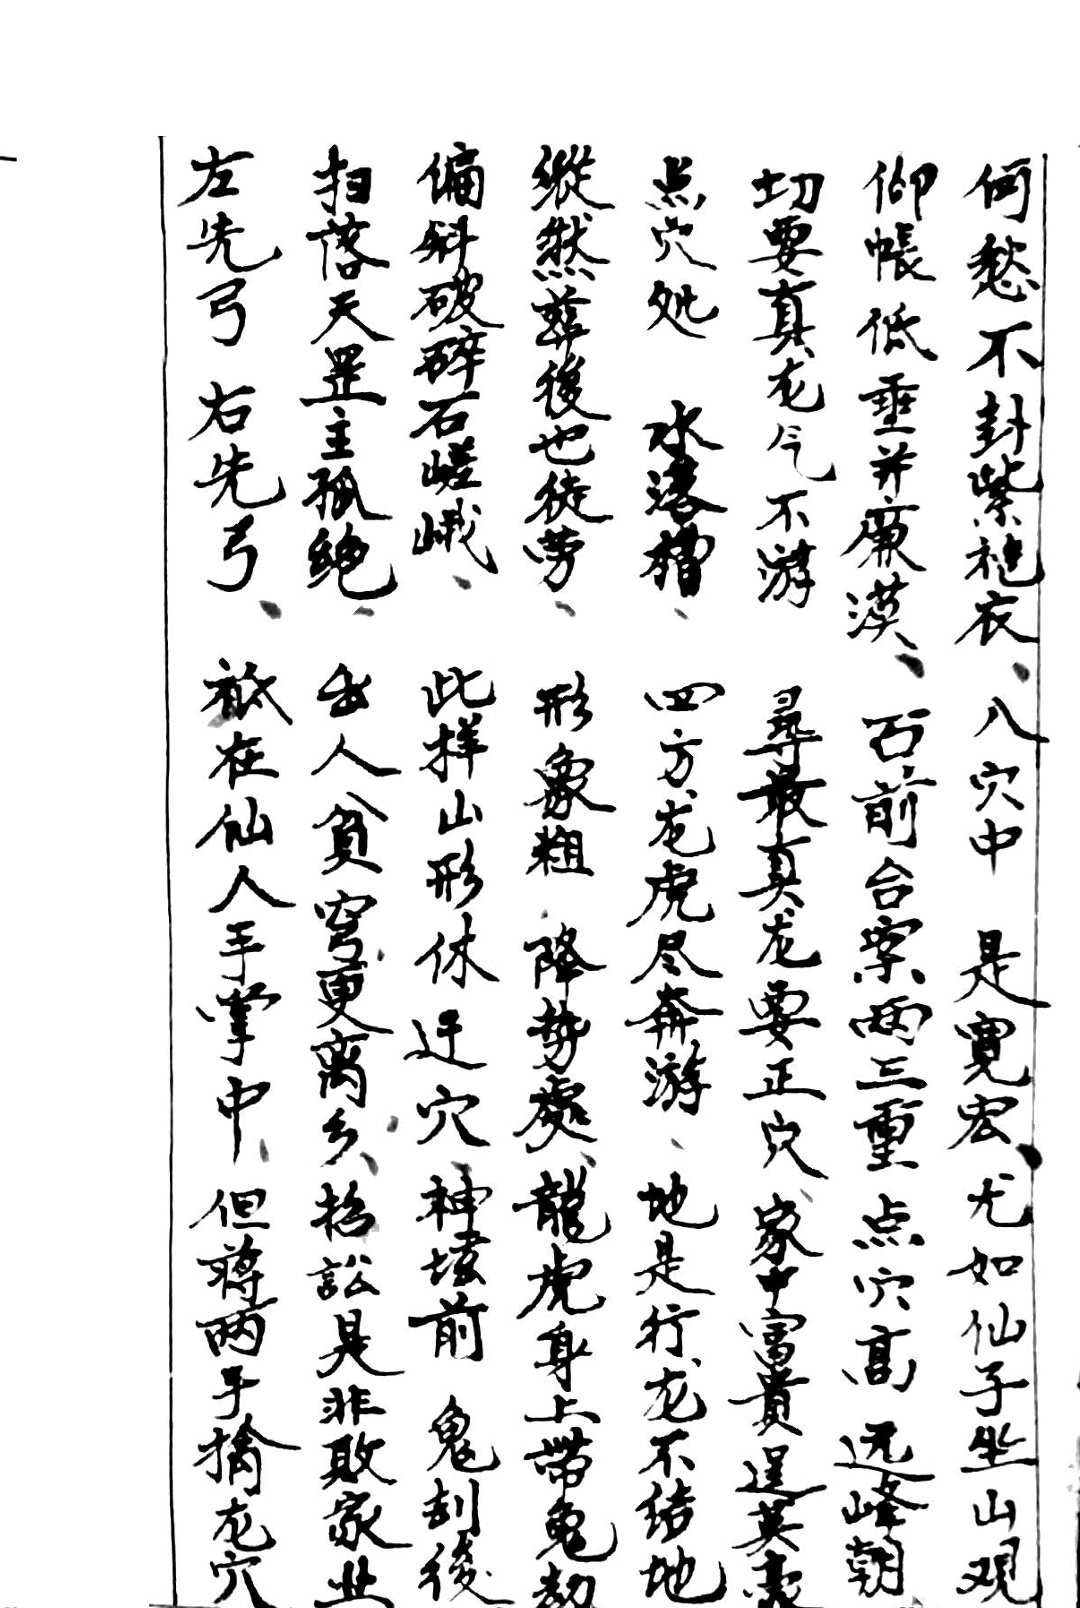 何愁不封紫袍衣、八穴中 是寬宏、尤如仙子坐山观
仰帳低垂并廉漠、石前台案两三重 点穴高 远峰朝
切要真龙气不游 尋最真龙要正穴、家中富貴逞英豪
点穴处 水落槽、四方龙虎尽奔游、地是行龙不结地
縱然葬後也徒劳、形象粗 降势處、龍虎身上带鬼劫
偏斜破碎石嵯峨、此样山形休迁穴 神墳前 鬼刮後
扫落天罡主孤绝、出人貧穷更离乡、招訟是非敗家业
左先弓 右先弓、祗在仙人手掌中、但尋两手擒龙穴